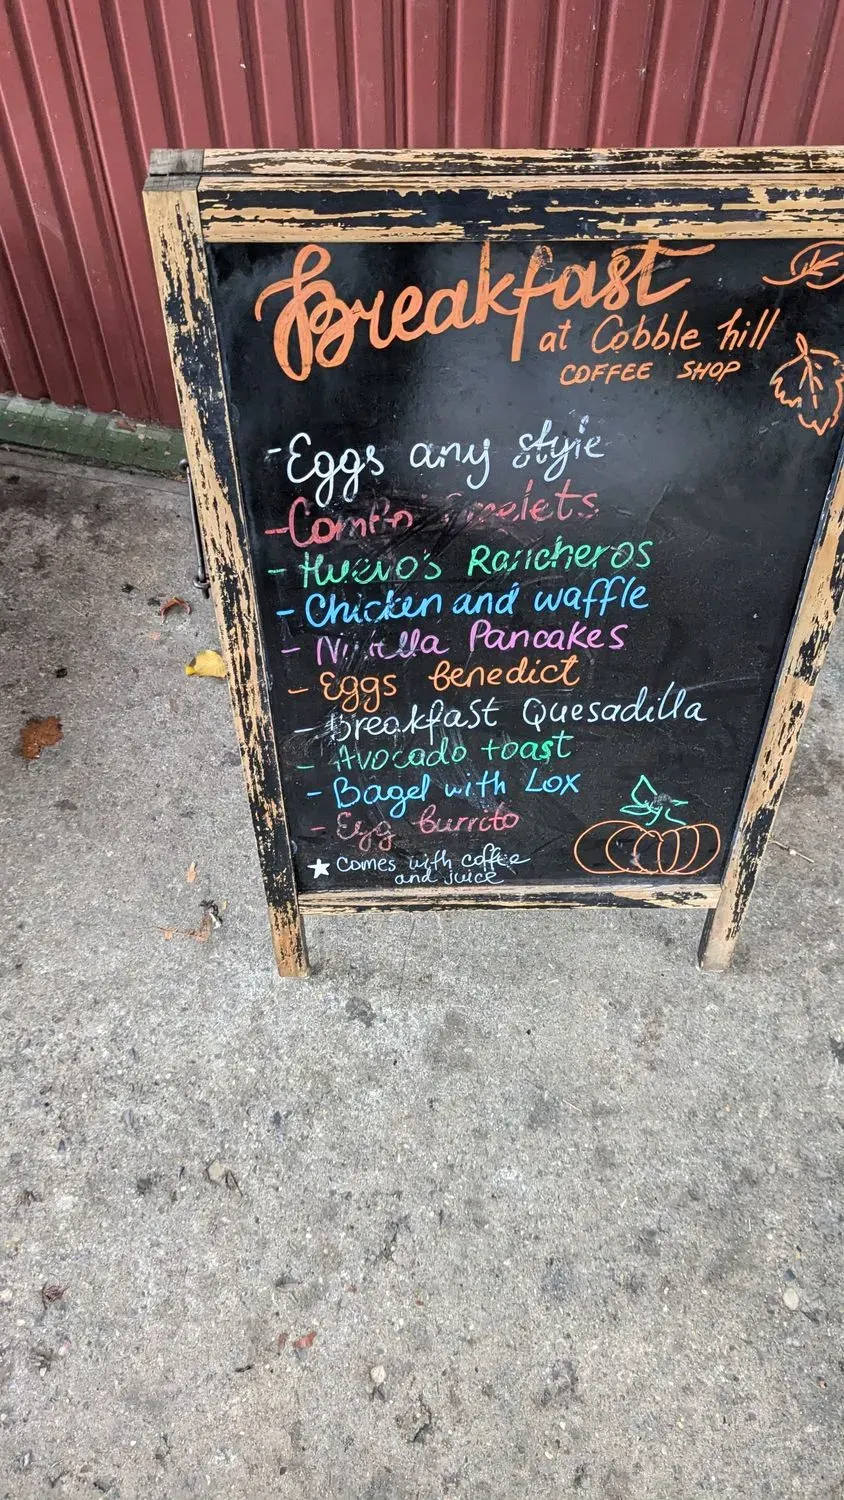 Breakfast
at Cobble hill
COFFEE SHOP
-Eggs any style
-Combo Omelets
- Huevos Rancheros
- Chicken and waffle
- Nutella Pancakes
- Eggs benedict
- Breakfast Quesadilla
- Avocado toast
- Bagel with Lox
- Egg burrito
★ Comes with coffee
and juice